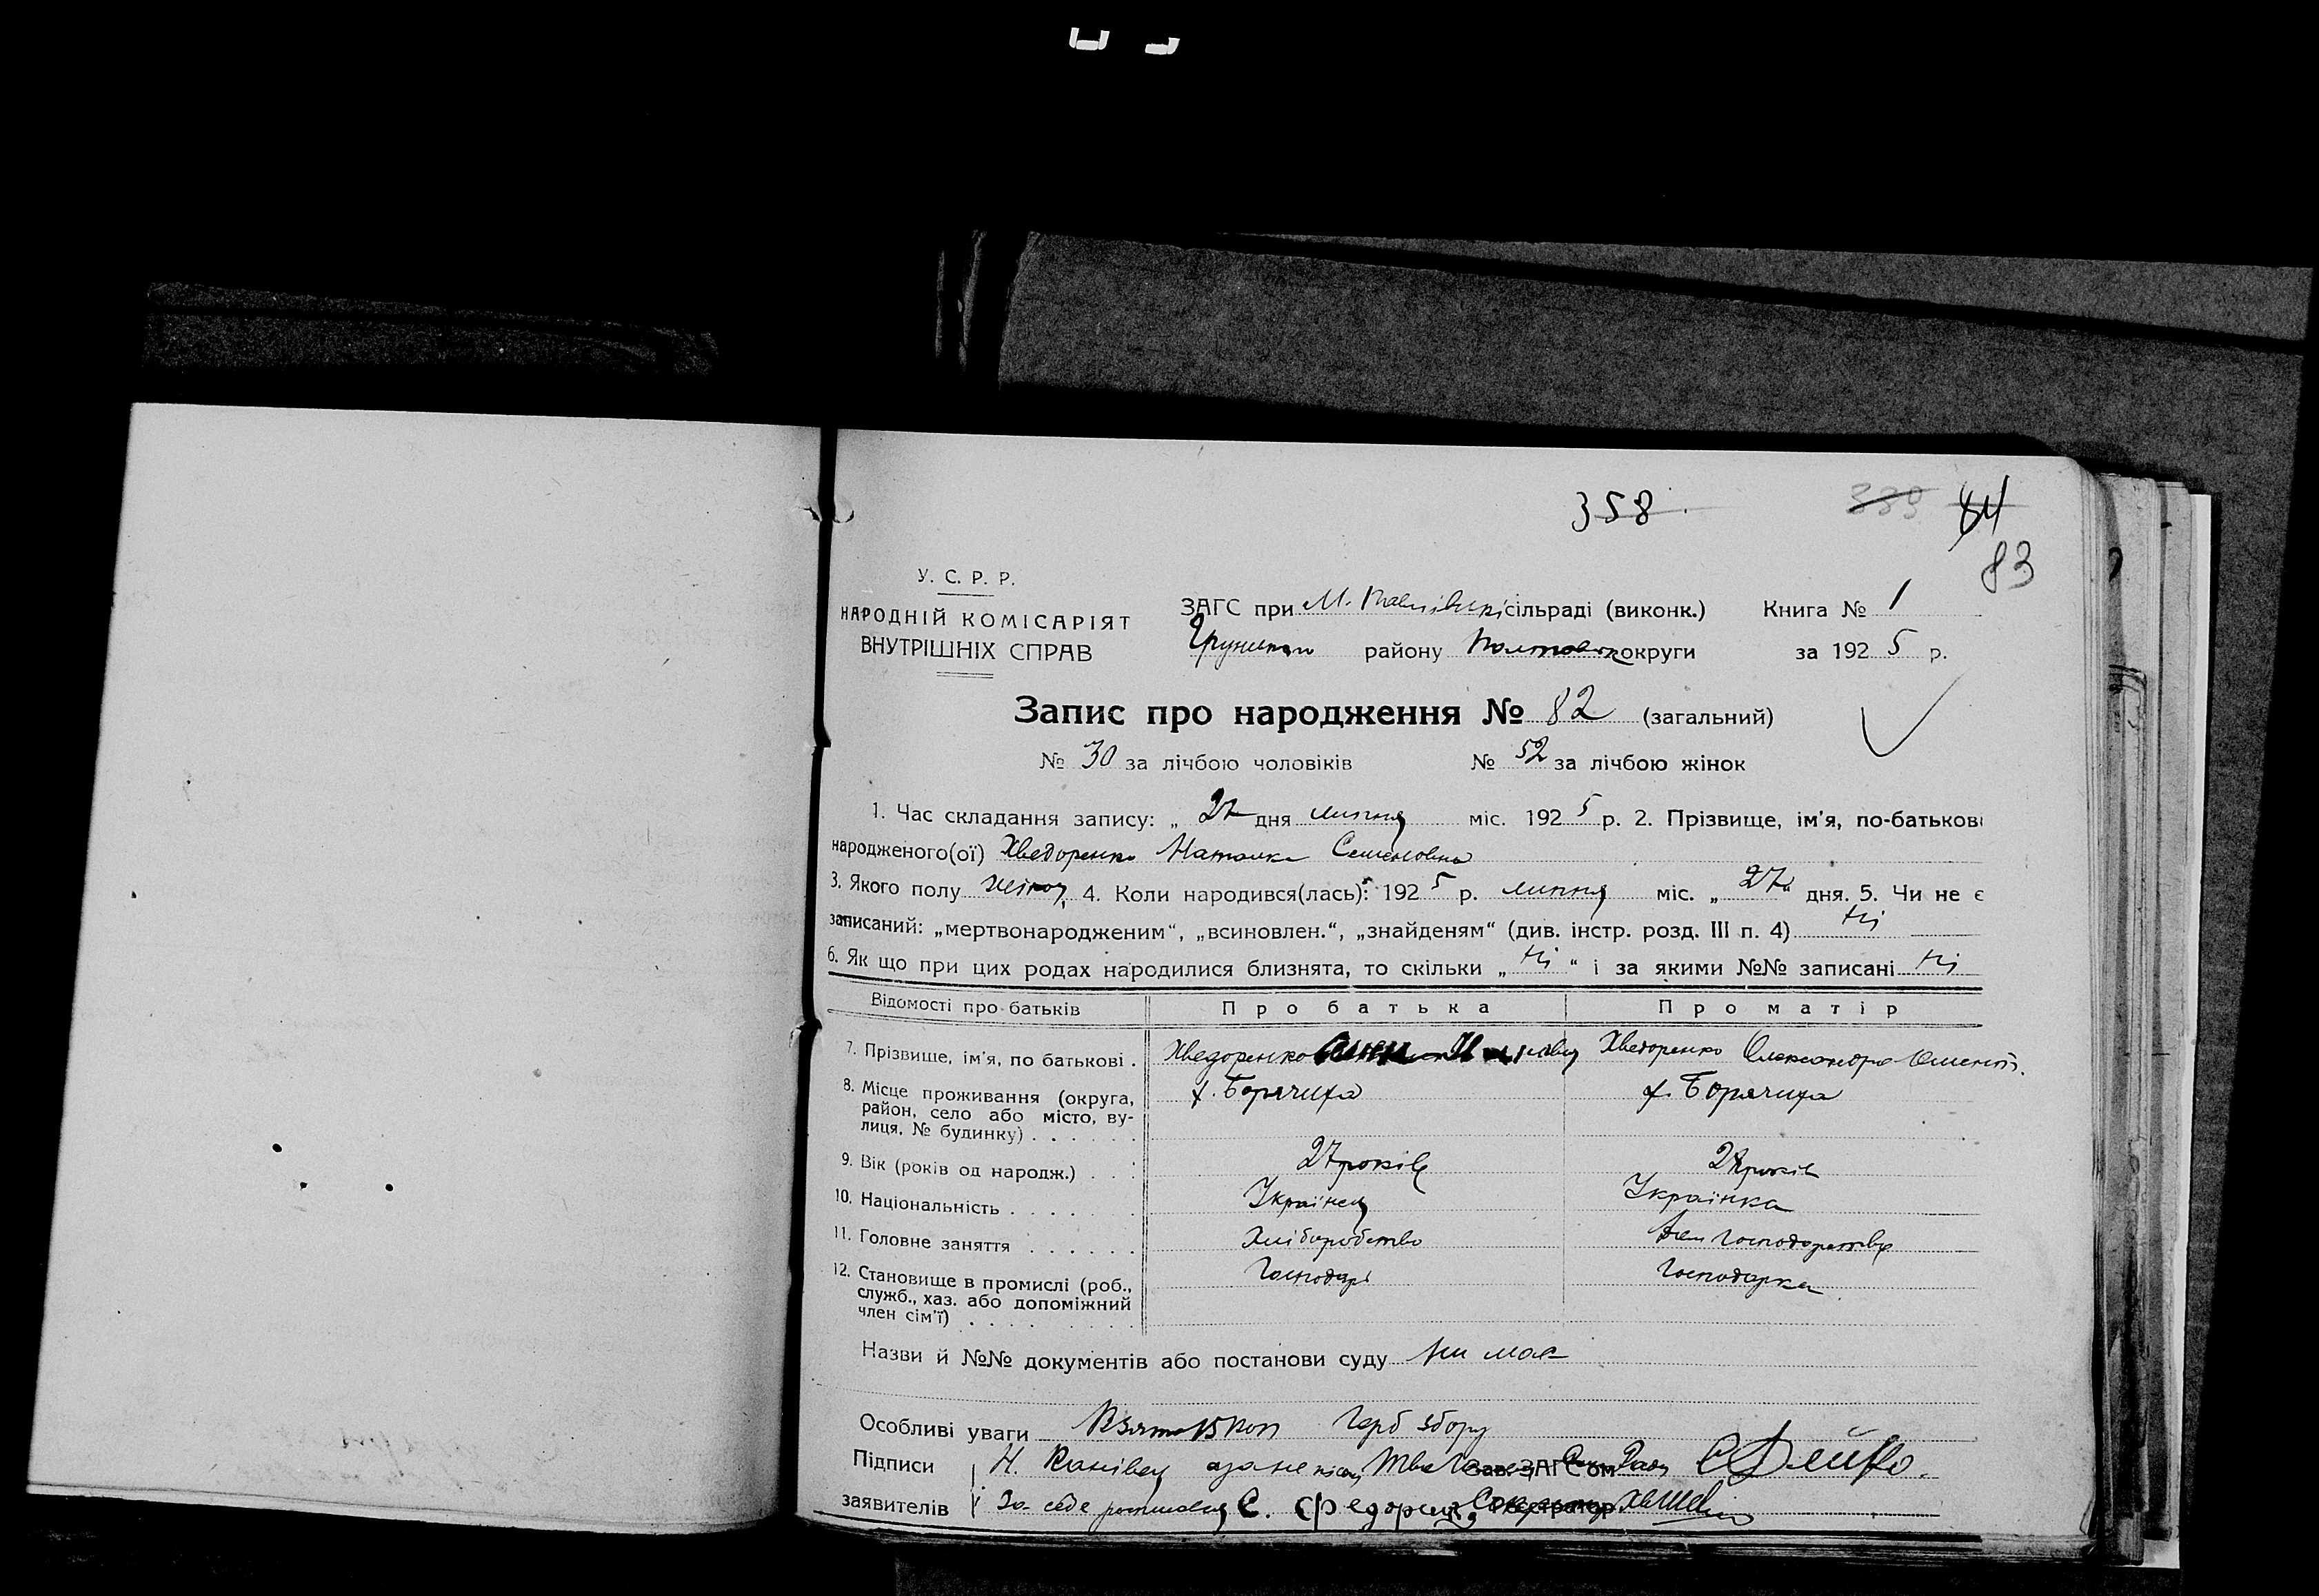 358
339 84
83
У. С. Р. Р.
НАРОДНІЙ КОМІСАРІЯТ
ВНУТРІШНІХ СПРАВ
ЗАГС при М. сільраді (виконк.) Книга № 1
району округи за 192 5 р.
Запис про народження № 82 (загальний)
№ 30 за лічбою чоловіків № 52 за лічбою жінок
1. Час складання запису: „ 27 дня липня міс. 192 5 р. 2. Прізвище, ім'я, по-батькові
народженого(ої) Хведоренко Наталка Семеновна
3. Якого полу жіноч. 4. Коли народився(лась): 192 5 р. липня міс. „ 27 “ дня. 5. Чи не є
записаний: „мертвонародженим“, „всиновлен.“, „знайденям“ (див. інстр. розд. III п. 4) ні
6. Як що при цих родах народилися близнята, то скільки „ ні “ і за якими №№ записані ні
Відомості про батьків Про батька Про матір
7. Прізвище, ім'я, по батькові . Хведоренко Хведоренко Олександра
8. Місце проживання (округа, х. Борячиха х. Борячиха
район, село або місто, ву-
лиця, № будинку) . . . . . .
9. Вік (років од народж.) . . . 27 років років
10. Національність . . . . . . Українець Українка
11. Головне заняття . . . . . . Хліборобство
12. Становище в промислі (роб., Господарь Господарка
служб., хаз. або допоміжний
член сім'ї) . . . . . . . . .
Назви й №№ документів або постанови суду
Особливі уваги Взято 15 коп Герб збору
Підписи Н. Канівец Зав. ЗАГС'ом
заявителів За себе С. Реєстратор